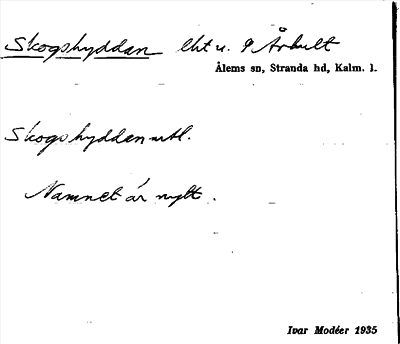 Skogshyddan lht u. 9 Århult
Ålems sn, Stranda hd, Kalm. l.
Skogshyddan utl.
Namnet är nytt.
Ivar Modéer 1935